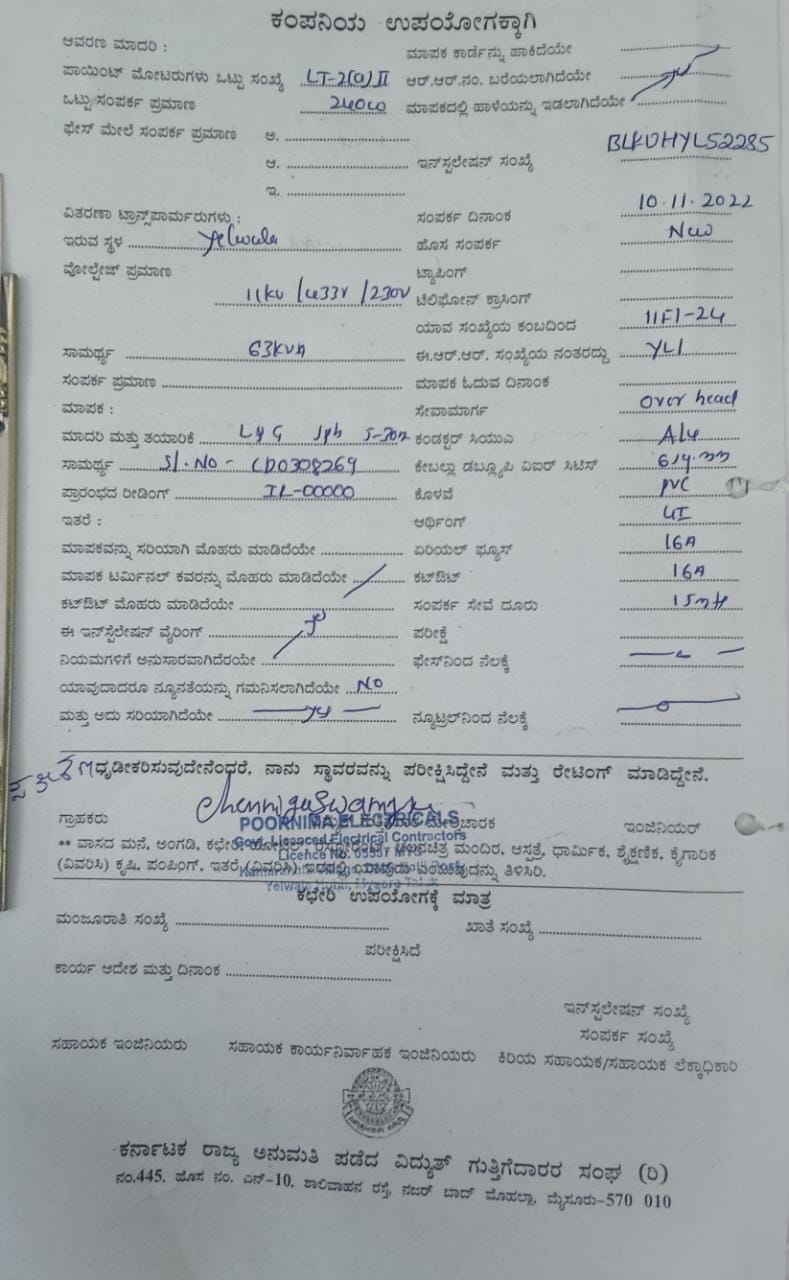 ಕಂಪನಿಯ ಉಪಯೋಗಕ್ಕಾಗಿ
ಆವರಣ ಮಾದರಿ : ಮಾಪಕ ಕಾರ್ಡನ್ನು ಹಾಕಿದೆಯೇ
ಪಾಯಿಂಟ್ ಮೋಟರುಗಳು ಒಟ್ಟು ಸಂಖ್ಯೆ LT-2(a)II ಆರ್.ಆರ್.ನಂ. ಬರೆಯಲಾಗಿದೆಯೇ
ಒಟ್ಟು ಸಂಪರ್ಕ ಪ್ರಮಾಣ 240w ಮಾಪಕದಲ್ಲಿ ಹಾಳೆಯನ್ನು ಇಡಲಾಗಿದೆಯೇ
ಫೇಸ್ ಮೇಲೆ ಸಂಪರ್ಕ ಪ್ರಮಾಣ ಅ.
ಆ. ಇನ್‌ಸ್ಪಲೇಷನ್ ಸಂಖ್ಯೆ BLKDHYL52285
ಇ.
ವಿತರಣಾ ಟ್ರಾನ್ಸ್‌ಪಾರ್ಮರುಗಳು : ಸಂಪರ್ಕ ದಿನಾಂಕ 10.11.2022
ಇರುವ ಸ್ಥಳ Yelwala ಹೊಸ ಸಂಪರ್ಕ New
ವೋಲ್ಟೇಜ್ ಪ್ರಮಾಣ ಟ್ಯಾಪಿಂಗ್
11kv /433v /230v ಟೆಲಿಫೋನ್ ಕ್ರಾಸಿಂಗ್
ಯಾವ ಸಂಖ್ಯೆಯ ಕಂಬದಿಂದ 11F1-24
ಸಾಮರ್ಥ್ಯ 63kva ಈ.ಆರ್.ಆರ್. ಸಂಖ್ಯೆಯ ನಂತರದ್ದು YL1
ಸಂಪರ್ಕ ಪ್ರಮಾಣ ಮಾಪಕ ಓದುವ ದಿನಾಂಕ
ಮಾಪಕ : ಸೇವಾಮಾರ್ಗ Over head
ಮಾದರಿ ಮತ್ತು ತಯಾರಿಕೆ L&G 1ph 5-30A ಕಂಡಕ್ಟರ್ ಸಿಯುಎ Alu
ಸಾಮರ್ಥ್ಯ Sl.No - LD0308269 ಕೇಬಲ್ಲು ಡಬ್ಲ್ಯೂಪಿ ವಿಐರ್ ಸಿಟಿಸ್
ಪ್ರಾರಂಭದ ರೀಡಿಂಗ್ IR-00000 ಕೊಳವೆ PVC
ಇತರೆ : ಆರ್ಥಿಂಗ್ GI
ಮಾಪಕವನ್ನು ಸರಿಯಾಗಿ ಮೊಹರು ಮಾಡಿದೆಯೇ ಏರಿಯಲ್ ಫ್ಯೂಸ್ 16A
ಮಾಪಕ ಟರ್ಮಿನಲ್ ಕವರನ್ನು ಮೊಹರು ಮಾಡಿದೆಯೇ ಕಟ್‌ಔಟ್ 16A
ಕಟ್‌ಔಟ್ ಮೊಹರು ಮಾಡಿದೆಯೇ ಸಂಪರ್ಕ ಸೇವೆ ದೂರು 15mt
ಈ ಇನ್‌ಸ್ಟೆಲೇಷನ್ ವೈರಿಂಗ್ ಪರೀಕ್ಷೆ
ನಿಯಮಗಳಿಗೆ ಅನುಸಾರವಾಗಿದೆರಯೇ ಫೇಸ್‌ನಿಂದ ನೆಲಕ್ಕೆ
ಯಾವುದಾದರೂ ನ್ಯೂನತೆಯನ್ನು ಗಮನಿಸಲಾಗಿದೆಯೇ NO
ಮತ್ತು ಅದು ಸರಿಯಾಗಿದೆಯೇ ನ್ಯೂಟ್ರಲ್‌ನಿಂದ ನೆಲಕ್ಕೆ
ಧೃಡೀಕರಿಸುವುದೇನೆಂಧರೆ, ನಾನು ಸ್ಥಾವರವನ್ನು ಪರೀಕ್ಷಿಸಿದ್ದೇನೆ ಮತ್ತು ರೇಟಿಂಗ್ ಮಾಡಿದ್ದೇನೆ.
ಗ್ರಾಹಕರು ಇಂಜಿನಿಯರ್
POORNIMA ELECTRICALS
Govt. Licenced Electrical Contractors
Licence No.
** ವಾಸದ ಮನೆ, ಅಂಗಡಿ, ಕಛೇರಿ, ಚಲನಚಿತ್ರ ಮಂದಿರ, ಆಸ್ಪತ್ರೆ, ಧಾರ್ಮಿಕ, ಶೈಕ್ಷಣಿಕ, ಕೈಗಾರಿಕ
(ವಿವರಿಸಿ) ಕೃಷಿ, ಪಂಪಿಂಗ್, ಇತರೆ (ವಿವರಿಸಿ) ಇದರಲ್ಲಿ ಯಾವುದು ಎಂಬುವುದನ್ನು ತಿಳಿಸಿರಿ.
ಕಛೇರಿ ಉಪಯೋಗಕ್ಕೆ ಮಾತ್ರ
ಮಂಜೂರಾತಿ ಸಂಖ್ಯೆ ಖಾತೆ ಸಂಖ್ಯೆ
ಪರೀಕ್ಷಿಸಿದೆ
ಕಾರ್ಯ ಆದೇಶ ಮತ್ತು ದಿನಾಂಕ
ಇನ್‌ಸ್ಪಲೇಷನ್ ಸಂಖ್ಯೆ
ಸಂಪರ್ಕ ಸಂಖ್ಯೆ
ಸಹಾಯಕ ಇಂಜಿನಿಯರು ಸಹಾಯಕ ಕಾರ್ಯನಿರ್ವಾಹಕ ಇಂಜಿನಿಯರು ಕಿರಿಯ ಸಹಾಯಕ/ಸಹಾಯಕ ಲೆಕ್ಕಾಧಿಕಾರಿ
ಕರ್ನಾಟಕ ರಾಜ್ಯ ಅನುಮತಿ ಪಡೆದ ವಿದ್ಯುತ್ ಗುತ್ತಿಗೆದಾರರ ಸಂಘ (ರಿ)
ನಂ.445, ಹೊಸ ನಂ. ಎನ್-10, ಶಾಲಿವಾಹನ ರಸ್ತೆ, ನಜರ್ ಬಾದ್ ಮೊಹಲ್ಲಾ, ಮೈಸೂರು-570 010